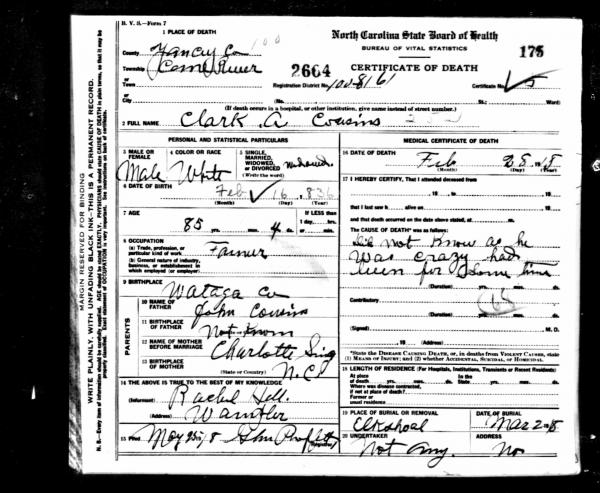 B. V. S.—Form 7
1 PLACE OF DEATH
North Carolina State Board of Health
BUREAU OF VITAL STATISTICS
175
County Yancey Co 100
CERTIFICATE OF DEATH
Township 2664
or Town Registration District No. 100-8161 Certificate No. 5
or City (No. St.; Ward)
(If death occurs in a hospital, or other institution, give name instead of street number.)
2 FULL NAME Clark A Cousins
PERSONAL AND STATISTICAL PARTICULARS
3 MALE OR FEMALE Male
4 COLOR OR RACE White
5 SINGLE, MARRIED, WIDOWED, or DIVORCED (Write the word) Widowed
6 DATE OF BIRTH Feb 16 836
(Month) (Day) (Year)
7 AGE 85 yrs. mos. 4 ds.
If LESS than 1 day, hrs. or min.
8 OCCUPATION
(a) Trade, profession, or particular kind of work Farmer
(b) General nature of industry, business, or establishment in which employed (or employer)
9 BIRTHPLACE Wataga Co
PARENTS
10 NAME OF FATHER John Cousins
11 BIRTHPLACE OF FATHER Not Known
12 NAME OF MOTHER BEFORE MARRIAGE Charlotte
13 BIRTHPLACE OF MOTHER (State or Country) N.C
14 THE ABOVE IS TRUE TO THE BEST OF MY KNOWLEDGE
(Informant) Rachel Hill
(Address)
15 Filed May 25 8 John Proffitt
MEDICAL CERTIFICATE OF DEATH
16 DATE OF DEATH Feb 28 18
(Month) (Day) (Year)
17 I HEREBY CERTIFY, That I attended deceased from
19 to 19
that I last saw h alive on 19
and that death occurred on the date above stated, at m.
The CAUSE OF DEATH* was as follows:
Did not Know as he
was crazy had
been for some time
(Duration) yrs. mos. ds.
Contributory
(Duration) yrs. mos. ds.
(Signed) M. D.
19 (Address)
*State the DISEASE CAUSING DEATH, or, in deaths from VIOLENT CAUSES, state
(1) MEANS OF INJURY; and (2) whether ACCIDENTAL, SUICIDAL, or HOMICIDAL.
18 LENGTH OF RESIDENCE (For Hospitals, Institutions, Transients or Recent Residents)
At place of death yrs. mos. ds. In the State yrs. mos. ds.
Where was disease contracted, if not at place of death?
Former or usual residence
19 PLACE OF BURIAL OR REMOVAL Elkshoal
DATE OF BURIAL Mar 2
20 UNDERTAKER Not Any
ADDRESS No
MARGIN RESERVED FOR BINDING
WRITE PLAINLY, WITH UNFADING BLACK INK—THIS IS A PERMANENT RECORD.